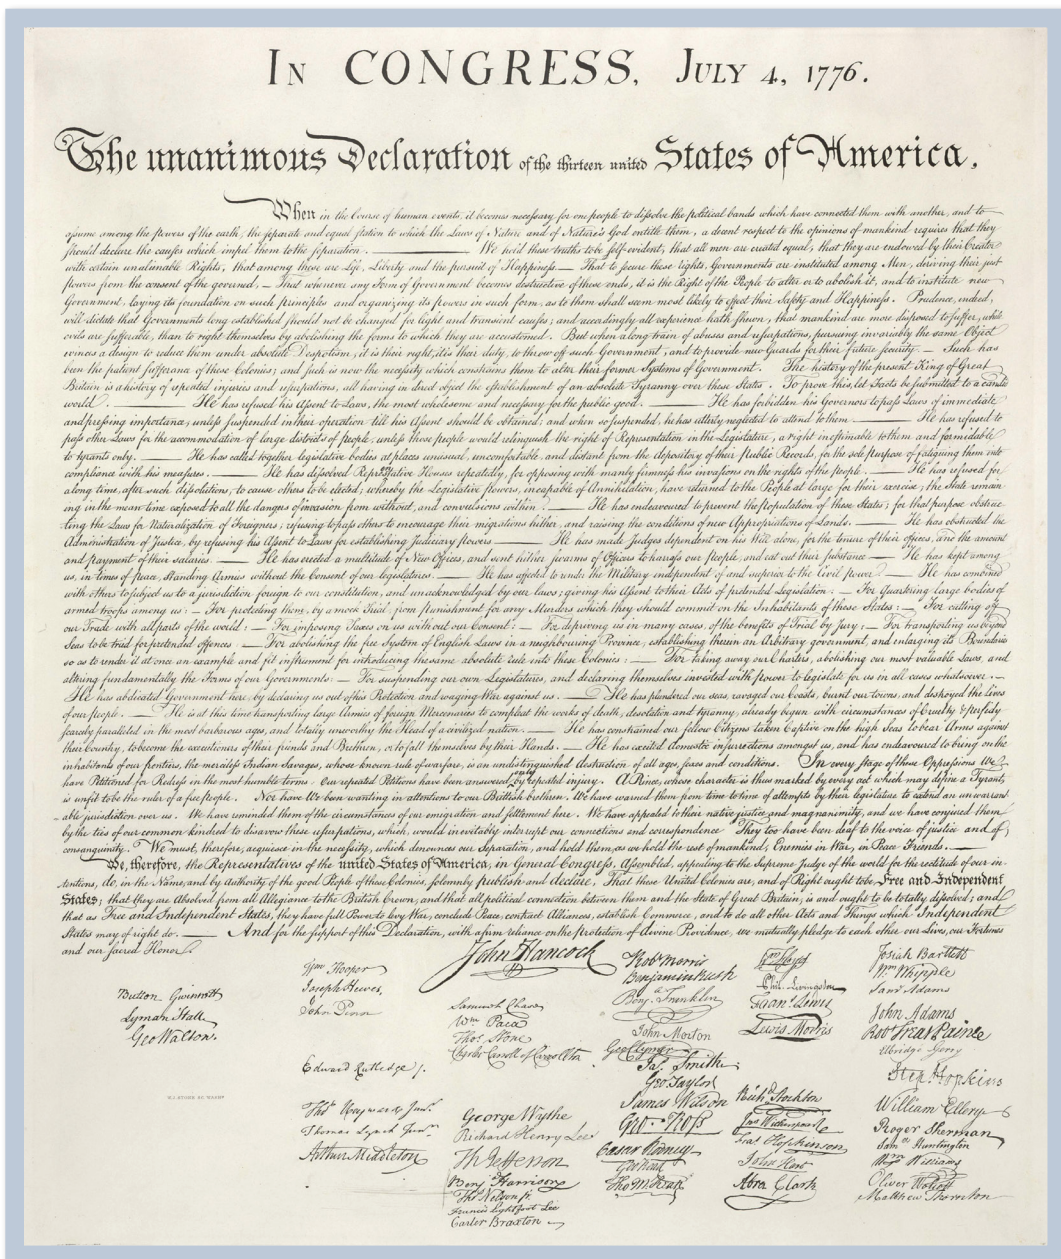 IN CONGRESS, JULY 4, 1776.
The unanimous Declaration of the thirteen united States of America,
When in the Course of human events, it becomes necessary for one people to dissolve the political bands which have connected them with another, and to
assume among the powers of the earth, the separate and equal station to which the Laws of Nature and of Nature's God entitle them, a decent respect to the opinions of mankind requires that they
should declare the causes which impel them to the separation. — We hold these truths to be self-evident, that all men are created equal, that they are endowed by their Creator
with certain unalienable Rights, that among these are Life, Liberty and the pursuit of Happiness.— That to secure these rights, Governments are instituted among Men, deriving their just
powers from the consent of the governed,— That whenever any Form of Government becomes destructive of these ends, it is the Right of the People to alter or to abolish it, and to institute new
Government, laying its foundation on such principles and organizing its powers in such form, as to them shall seem most likely to effect their Safety and Happiness. Prudence, indeed,
will dictate that Governments long established should not be changed for light and transient causes; and accordingly all experience hath shewn, that mankind are more disposed to suffer, while
evils are sufferable, than to right themselves by abolishing the forms to which they are accustomed. But when a long train of abuses and usurpations, pursuing invariably the same Object
evinces a design to reduce them under absolute Despotism, it is their right, it is their duty, to throw off such Government, and to provide new Guards for their future security.— Such has
been the patient sufferance of these Colonies; and such is now the necessity which constrains them to alter their former Systems of Government. The history of the present King of Great
Britain is a history of repeated injuries and usurpations, all having in direct object the establishment of an absolute Tyranny over these States. To prove this, let Facts be submitted to a candid
world. — He has refused his Assent to Laws, the most wholesome and necessary for the public good. — He has forbidden his Governors to pass Laws of immediate
and pressing importance, unless suspended in their operation till his Assent should be obtained; and when so suspended, he has utterly neglected to attend to them. — He has refused to
pass other Laws for the accommodation of large districts of people, unless those people would relinquish the right of Representation in the Legislature, a right inestimable to them and formidable
to tyrants only. — He has called together legislative bodies at places unusual, uncomfortable, and distant from the depository of their Public Records, for the sole purpose of fatiguing them into
compliance with his measures. — He has dissolved Representative Houses repeatedly, for opposing with manly firmness his invasions on the rights of the people. — He has refused for
a long time, after such dissolutions, to cause others to be elected; whereby the Legislative powers, incapable of Annihilation, have returned to the People at large for their exercise; the State remain
ing in the mean time exposed to all the dangers of invasion from without, and convulsions within. — He has endeavoured to prevent the population of these States; for that purpose obstruc
ting the Laws for Naturalization of Foreigners; refusing to pass others to encourage their migrations hither, and raising the conditions of new Appropriations of Lands. — He has obstructed the
Administration of Justice, by refusing his Assent to Laws for establishing Judiciary powers. — He has made Judges dependent on his Will alone, for the tenure of their offices, and the amount
and payment of their salaries. — He has erected a multitude of New Offices, and sent hither swarms of Officers to harrass our people, and eat out their substance. — He has kept among
us, in times of peace, Standing Armies without the Consent of our legislatures. — He has affected to render the Military independent of and superior to the Civil power. — He has combined
with others to subject us to a jurisdiction foreign to our constitution, and unacknowledged by our laws; giving his Assent to their Acts of pretended Legislation: — For Quartering large bodies of
armed troops among us: — For protecting them, by a mock Trial, from punishment for any Murders which they should commit on the Inhabitants of these States: — For cutting off
our Trade with all parts of the world: — For imposing Taxes on us without our Consent: — For depriving us in many cases, of the benefits of Trial by Jury: — For transporting us beyond
Seas to be tried for pretended offences — For abolishing the free System of English Laws in a neighbouring Province, establishing therein an Arbitrary government, and enlarging its Boundaries
so as to render it at once an example and fit instrument for introducing the same absolute rule into these Colonies: — For taking away our Charters, abolishing our most valuable Laws, and
altering fundamentally the Forms of our Governments: — For suspending our own Legislatures, and declaring themselves invested with power to legislate for us in all cases whatsoever. —
He has abdicated Government here, by declaring us out of his Protection and waging War against us. — He has plundered our seas, ravaged our Coasts, burnt our towns, and destroyed the lives
of our people. — He is at this time transporting large Armies of foreign Mercenaries to compleat the works of death, desolation and tyranny, already begun with circumstances of Cruelty & perfidy
scarcely paralleled in the most barbarous ages, and totally unworthy the Head of a civilized nation. — He has constrained our fellow Citizens taken Captive on the high Seas to bear Arms against
their Country, to become the executioners of their friends and Brethren, or to fall themselves by their Hands. — He has excited domestic insurrections amongst us, and has endeavoured to bring on the
inhabitants of our frontiers, the merciless Indian Savages, whose known rule of warfare, is an undistinguished destruction of all ages, sexes and conditions. In every stage of these Oppressions We
have Petitioned for Redress in the most humble terms: Our repeated Petitions have been answered only by repeated injury. A Prince, whose character is thus marked by every act which may define a Tyrant,
is unfit to be the ruler of a free people. Nor have We been wanting in attentions to our Brittish brethren. We have warned them from time to time of attempts by their legislature to extend an unwarrant
able jurisdiction over us. We have reminded them of the circumstances of our emigration and settlement here. We have appealed to their native justice and magnanimity, and we have conjured them
by the ties of our common kindred to disavow these usurpations, which, would inevitably interrupt our connections and correspondence. They too have been deaf to the voice of justice and of
consanguinity. We must, therefore, acquiesce in the necessity, which denounces our Separation, and hold them, as we hold the rest of mankind, Enemies in War, in Peace Friends. —
We, therefore, the Representatives of the united States of America, in General Congress, Assembled, appealing to the Supreme Judge of the world for the rectitude of our in-
tentions, do, in the Name, and by Authority of the good People of these Colonies, solemnly publish and declare, That these United Colonies are, and of Right ought to be Free and Independent
States; that they are Absolved from all Allegiance to the British Crown, and that all political connection between them and the State of Great Britain, is and ought to be totally dissolved; and
that as Free and Independent States, they have full Power to levy War, conclude Peace, contract Alliances, establish Commerce, and to do all other Acts and Things which Independent
States may of right do. — And for the support of this Declaration, with a firm reliance on the protection of divine Providence, we mutually pledge to each other our Lives, our Fortunes
and our sacred Honor.
Button Gwinnett
Lyman Hall
Geo Walton.
Wm Hooper
Joseph Hewes,
John Penn
Edward Rutledge /.
Thos Heyward Junr.
Thomas Lynch Junr.
Arthur Middleton
John Hancock
Samuel Chase
Wm Paca
Thos Stone
Charles Carroll of Carrollton
George Wythe
Richard Henry Lee
Th Jefferson
Benj Harrison
Thos Nelson jr.
Francis Lightfoot Lee
Carter Braxton
Robt Morris
Benjamin Rush
Benj. Franklin
John Morton
Geo Clymer
Jas. Smith
Geo. Taylor
James Wilson
Geo. Ross
Caesar Rodney
Geo Read
Tho M:Kean
Wm Floyd
Phil. Livingston
Frans. Lewis
Lewis Morris
Richd Stockton
Jno Witherspoon
Fras Hopkinson
John Hart
Abra Clark
Josiah Bartlett
Wm Whipple
Saml Adams
John Adams
Robt Treat Paine
Elbridge Gerry
Step. Hopkins
William Ellery
Roger Sherman
Samel Huntington
Wm Williams
Oliver Wolcott
Matthew Thornton
W.J. STONE SC. WASHN